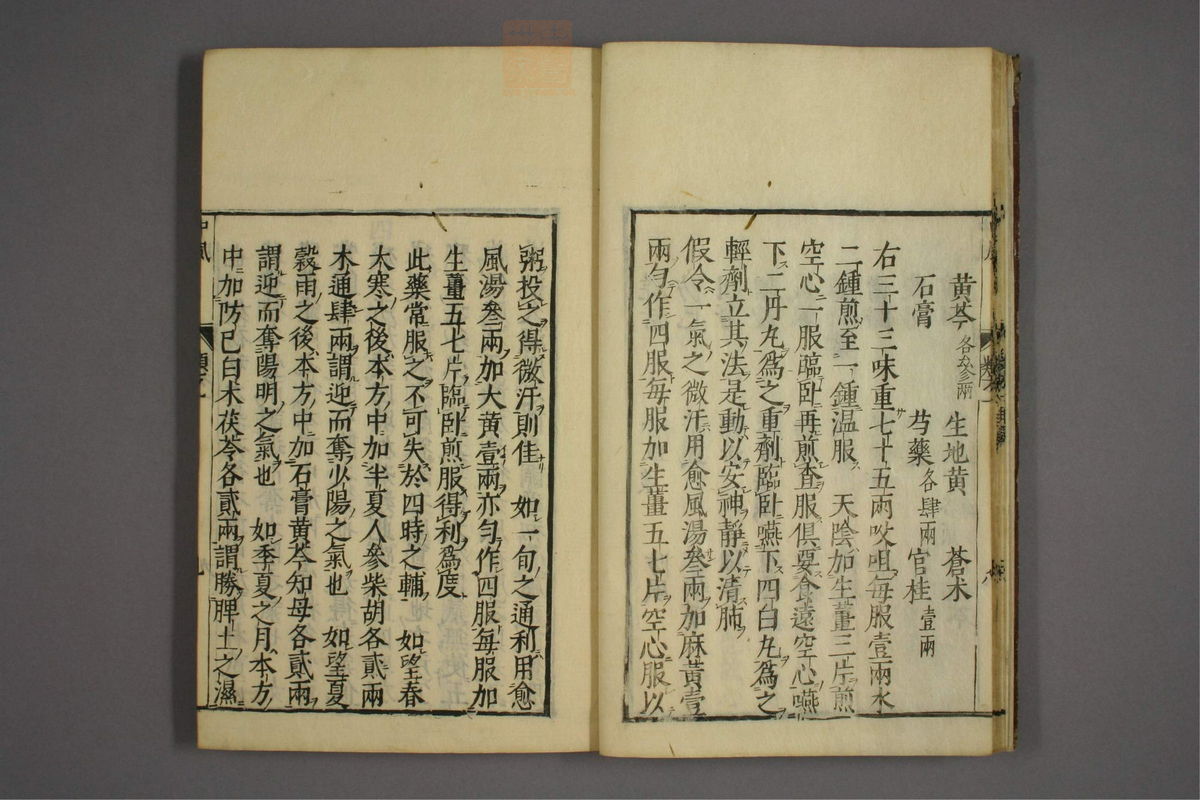 黄芩各叄兩 生地黄 蒼朮
石膏 芍藥各肆兩 官桂壹兩
右三十三味重七十五兩㕮咀毎服壹兩水
二鍾煎至一鍾温服 天陰加生薑三片煎
空心一服臨卧再煎査服俱要食遠空心嚥
下二丹丸爲之重劑臨卧嚥下四白丸爲之
輕劑立其法是動以安神靜以清肺
假令一氣之微汗用愈風湯叄兩加麻黄壹
兩勻作四服毎服加生薑五七片空心服以
粥投之得微汗則佳 如一旬之通利用愈
風湯叄兩加大黄壹兩亦勻作四服毎服加
生薑五七片臨卧煎服得利爲度
此藥常服之不可失於四時之輔 如望春
大寒之後本方中加半夏人參柴胡各貳兩
木通肆兩謂迎而奪少陽之氣也 如望夏
穀雨之後本方中加石膏黄芩知母各貳兩
謂迎而奪陽明之氣也 如季夏之月本方
中加防已白朮茯苓各貳兩謂勝脾土之濕